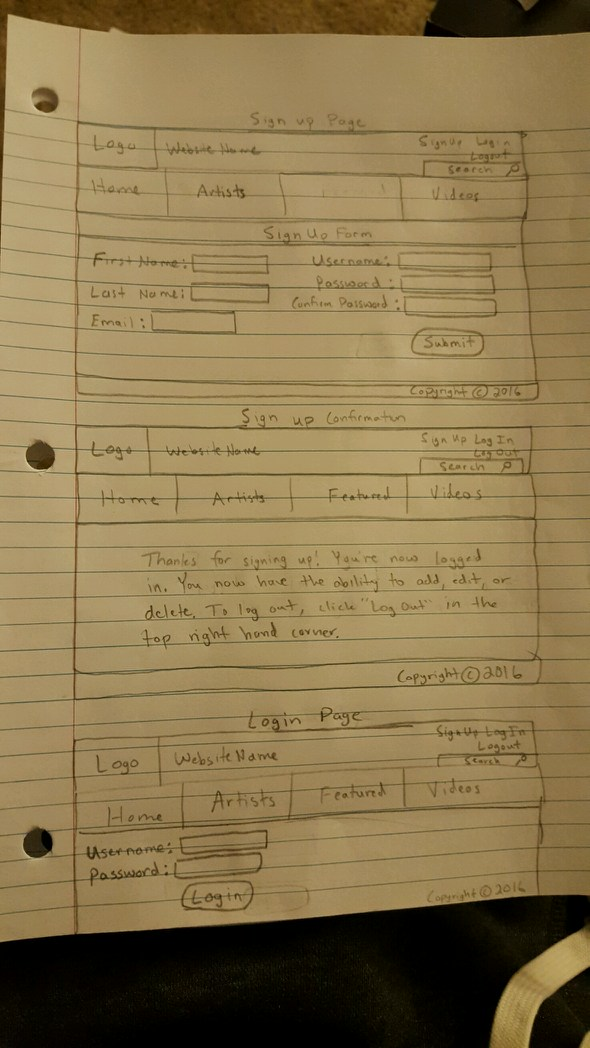 Sign up Page
Logo Website Name SignUp Login
Logout
Search
Home Artists Videos
Sign Up Form
First Name: Username:
Last Name: Password:
Confirm Password:
Email:
Submit
Copyright © 2016
Sign up Confirmation
Logo Website Name Sign Up Log In
Log Out
Search
Home Artists Featured Videos
Thanks for signing up! You're now logged
in. You now have the ability to add, edit, or
delete. To log out, click "Log Out" in the
top right hand corner.
Copyright © 2016
Login Page
Logo Website Name Sign Up Log In
Logout
Search
Home Artists Featured Videos
Username:
Password:
Login
Copyright © 2016